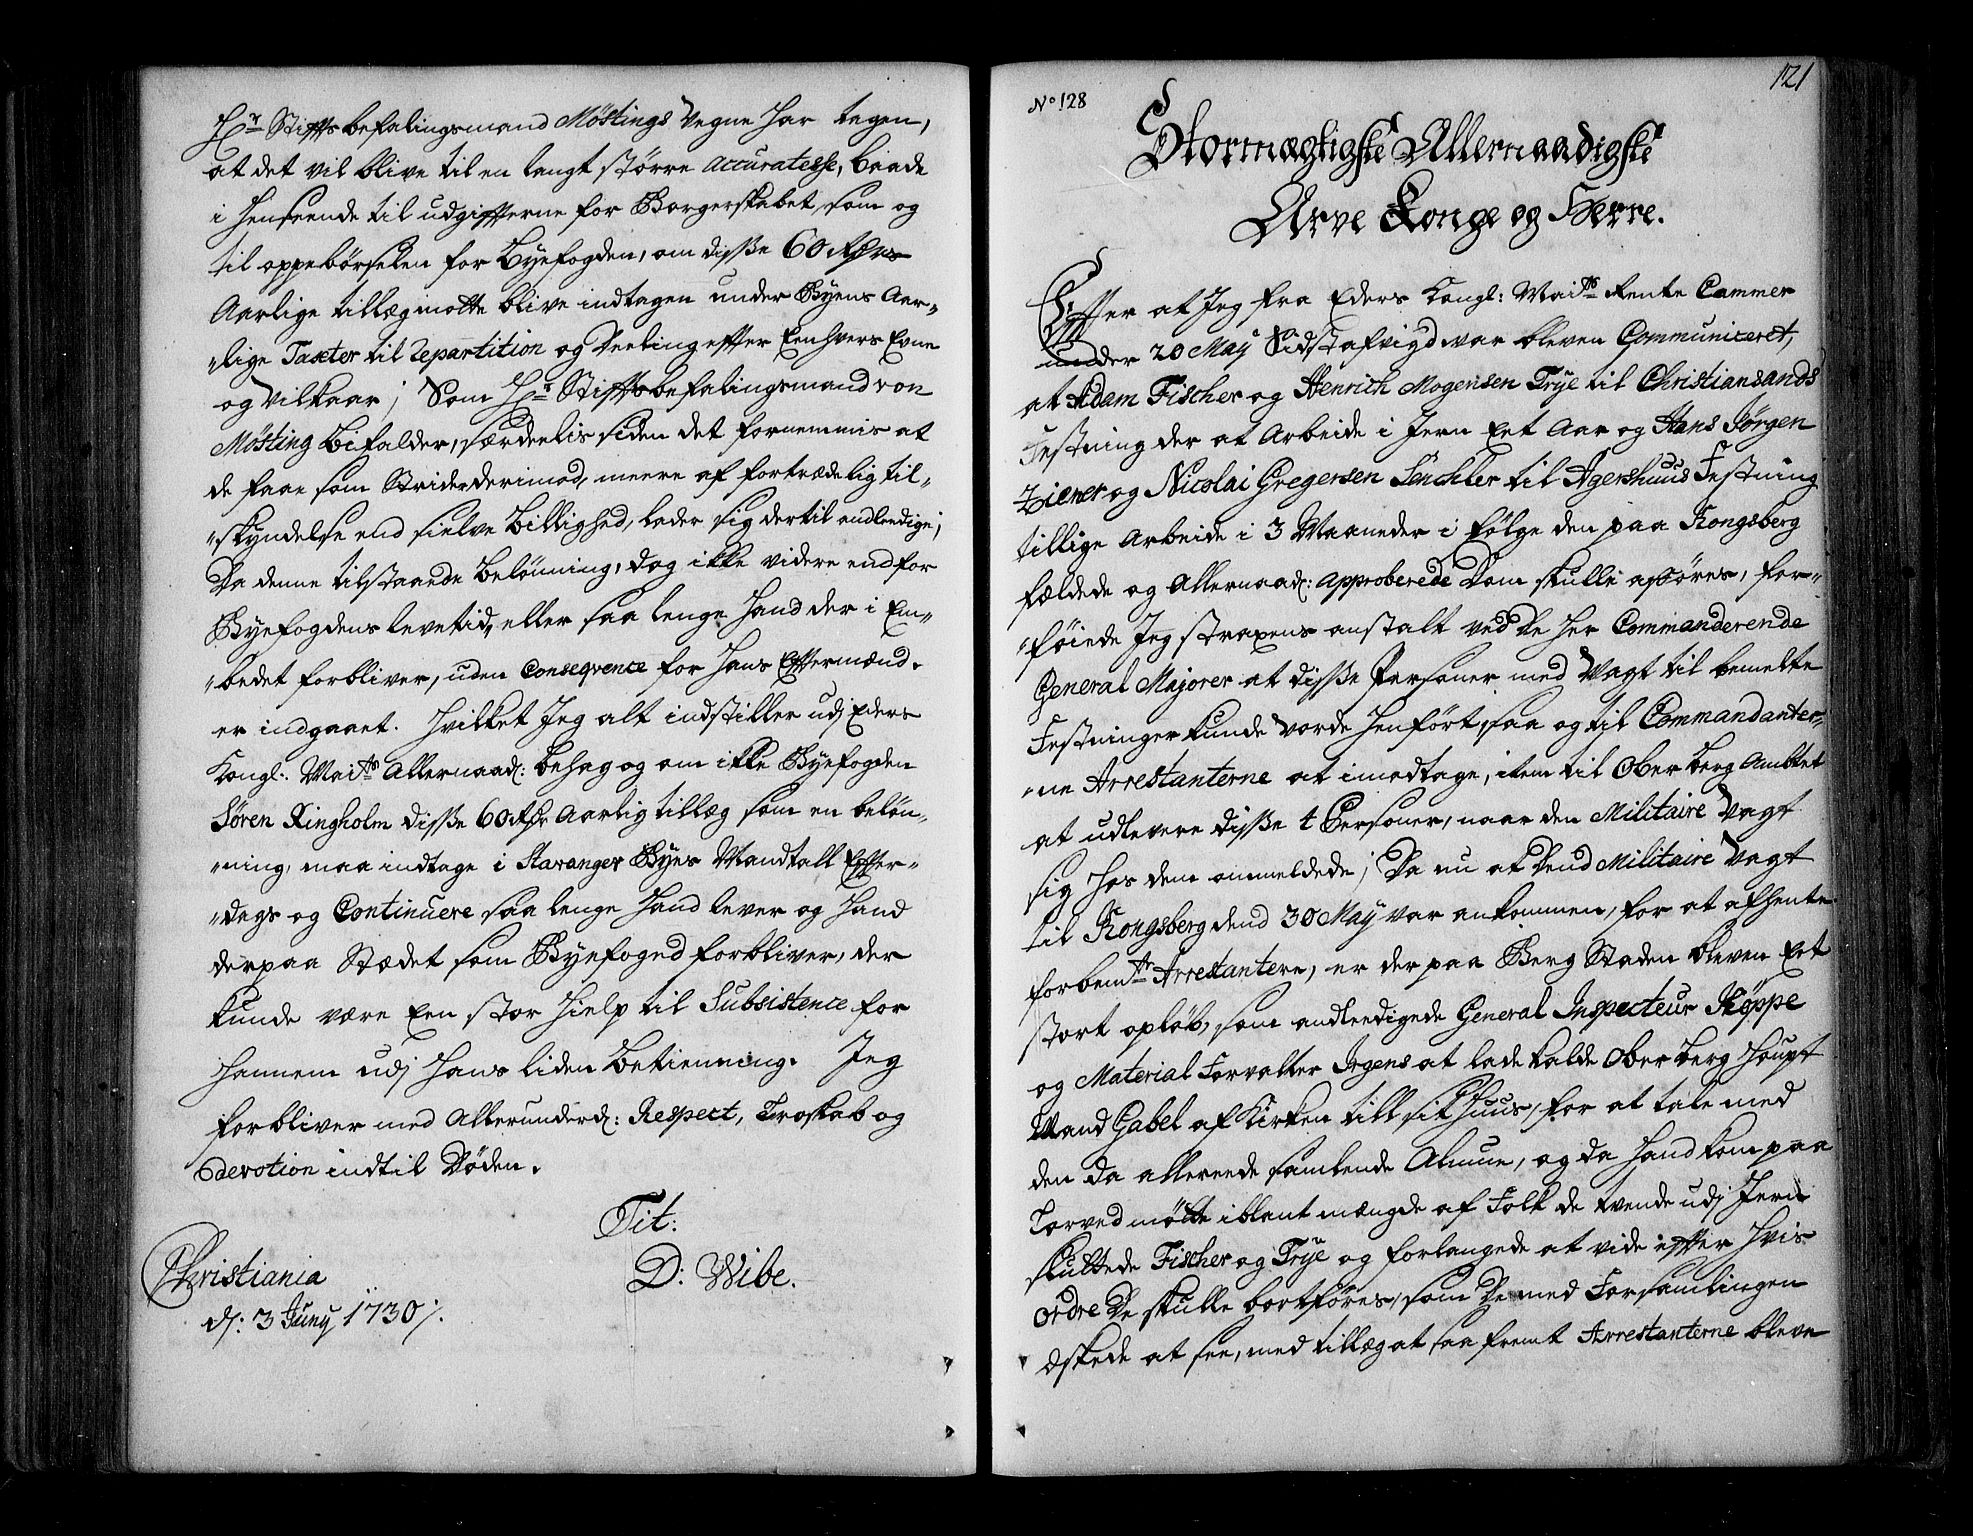 Hr Stiftsbefalingsmand Møstings Vegne har tagen,
at det vil blive til en langt større accuratesse, baade
i henseende til udgifterne for Borgerskabet, som og
til oppebørselen for Byefogden, om disse 60 Rdrs
Aarlige tillæg motte blive indtagen under Byens Aar„
„lige Taxter til repartition og Deeling efter Eenhvers Evne
og Vilkaar; Som Hr Stiftsbefalingsmand von
Møsting bifalder, særdeelis siden det fornemmis at
de faae som Strider derimod, meere af fortrædelig til„
„skyndelse end sielve billighed, lader sig dertil andleedige;
Da denne tilstaaede belønning, dog ikke videre end for
Byefogdens levetid, eller saa lenge hand der i Em„
„bedet forbliver, uden Conseqvence for hans Eftermænd.
er indgaaet. Hvilket Jeg alt indstiller udj Eders
Kongl: Maits Allernaad: behag og om ikke Byefogden
Søren Ringholm disse 60 Rdr Aarlig tillæg som en beløn„
„ning, maa indtage i Stavanger Byes Mandtall Efter„
„dags og Continuere saa lenge hand lever og hand
der paa Stædet som Byefoged forbliver, der
kunde være Een stor hielp til Subsistence for
hannem udj hans liden betienning. Jeg
forbliver med Allerunderd: Respect, Troskab og
devotion indtil Døden.
Tit:
Christiania D: Wibe.
d: 3 Juny 1730 /.
121
No 128
Stormægtigste Allernaadigste
Arve Konge og Herre.
Efter at Jeg fra Eders Kongl: Maits Rente Cammer
under 20 May Sidstafvigd var bleven Communiceret,
at Adam Fischer og Henrich Mogensen Trye til Christiansands
Festning der at Arbeide i Jern Eet Aar og Hans Jørgen
Ziener og Nicolai Gregersen Lenchler til Agershuus Festning
tillige Arbeide i 3 Maaneder i følge den paa Kongsberg
fældede og Allernaad: approberede Dom skulle afføres, for„
„føiede Jeg straxens anstalt ved De her Commanderende
General Majorer at disse Personer med Vagt til bemelte
Festninger kunde vorde henført, saa og til Commandanter„
„ne Arrestanterne at imodtage, item til Ober Berg Ambtet
at udlevere disse 4 Personer, naar den Militaire Vagt
sig hos dem anmeldede; Da nu at Dend Militaire Vagt
til Kongsberg dend 30 May var ankommen, for at afhente
forbemte Arrestantere, er der paa Berg Staden bleven Eet
stort opløb, som andleedigede General Inspecteur Köppe
og Material Forvalter Irgens at lade kalde Ober Berg Haupt
Mand Gabel af Kirken till sit Huus, for at tale med
den da allereede samlende Almue, og da hand kom paa
Torved møtte iblant mængde af Folk de tvende udj Jern
sluttede Fischer og Trye og forlangede at vide efter hvis
Ordre De skulle bortføres, som De med Forsamlingen
æskede at see, med tillæg at saa fremt Arrestanterne bleve